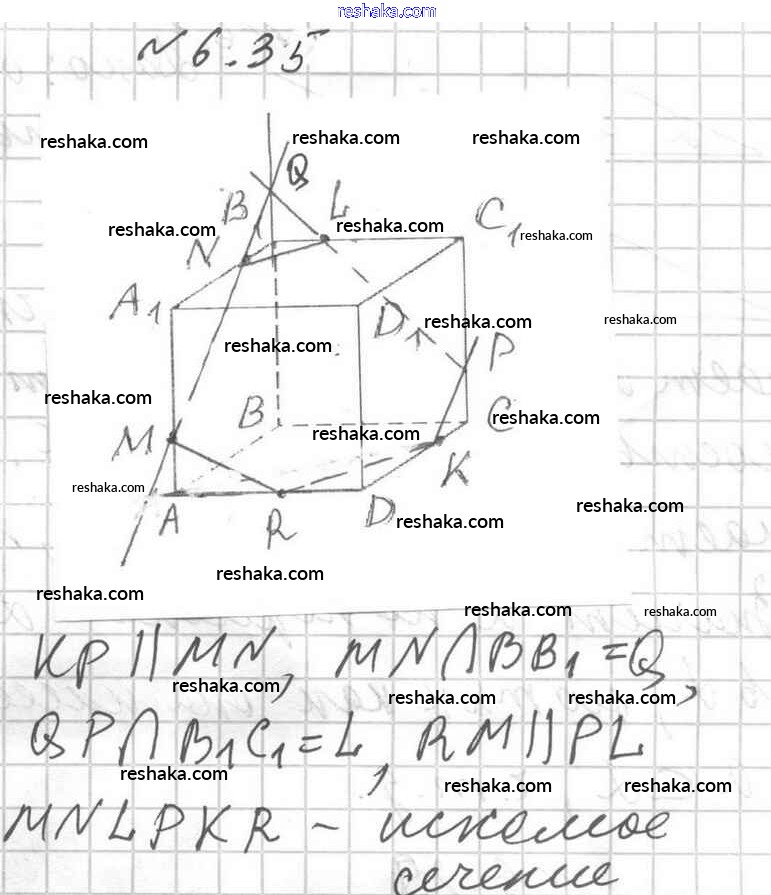 reshaka.com
№6.35
reshaka.com
reshaka.com reshaka.com
Q
B L
reshaka.com reshaka.com C1 reshaka.com
N
A1
D reshaka.com reshaka.com
reshaka.com P
reshaka.com
B reshaka.com C reshaka.com
M K
reshaka.com
A R D reshaka.com reshaka.com
reshaka.com
reshaka.com
reshaka.com reshaka.com
KP || MN, MN ∩ BB1 = Q,
reshaka.com
reshaka.com reshaka.com
QP ∩ B1C1 = L, RM || PL
reshaka.com
reshaka.com reshaka.com
MNLPKR – искомое
сечение